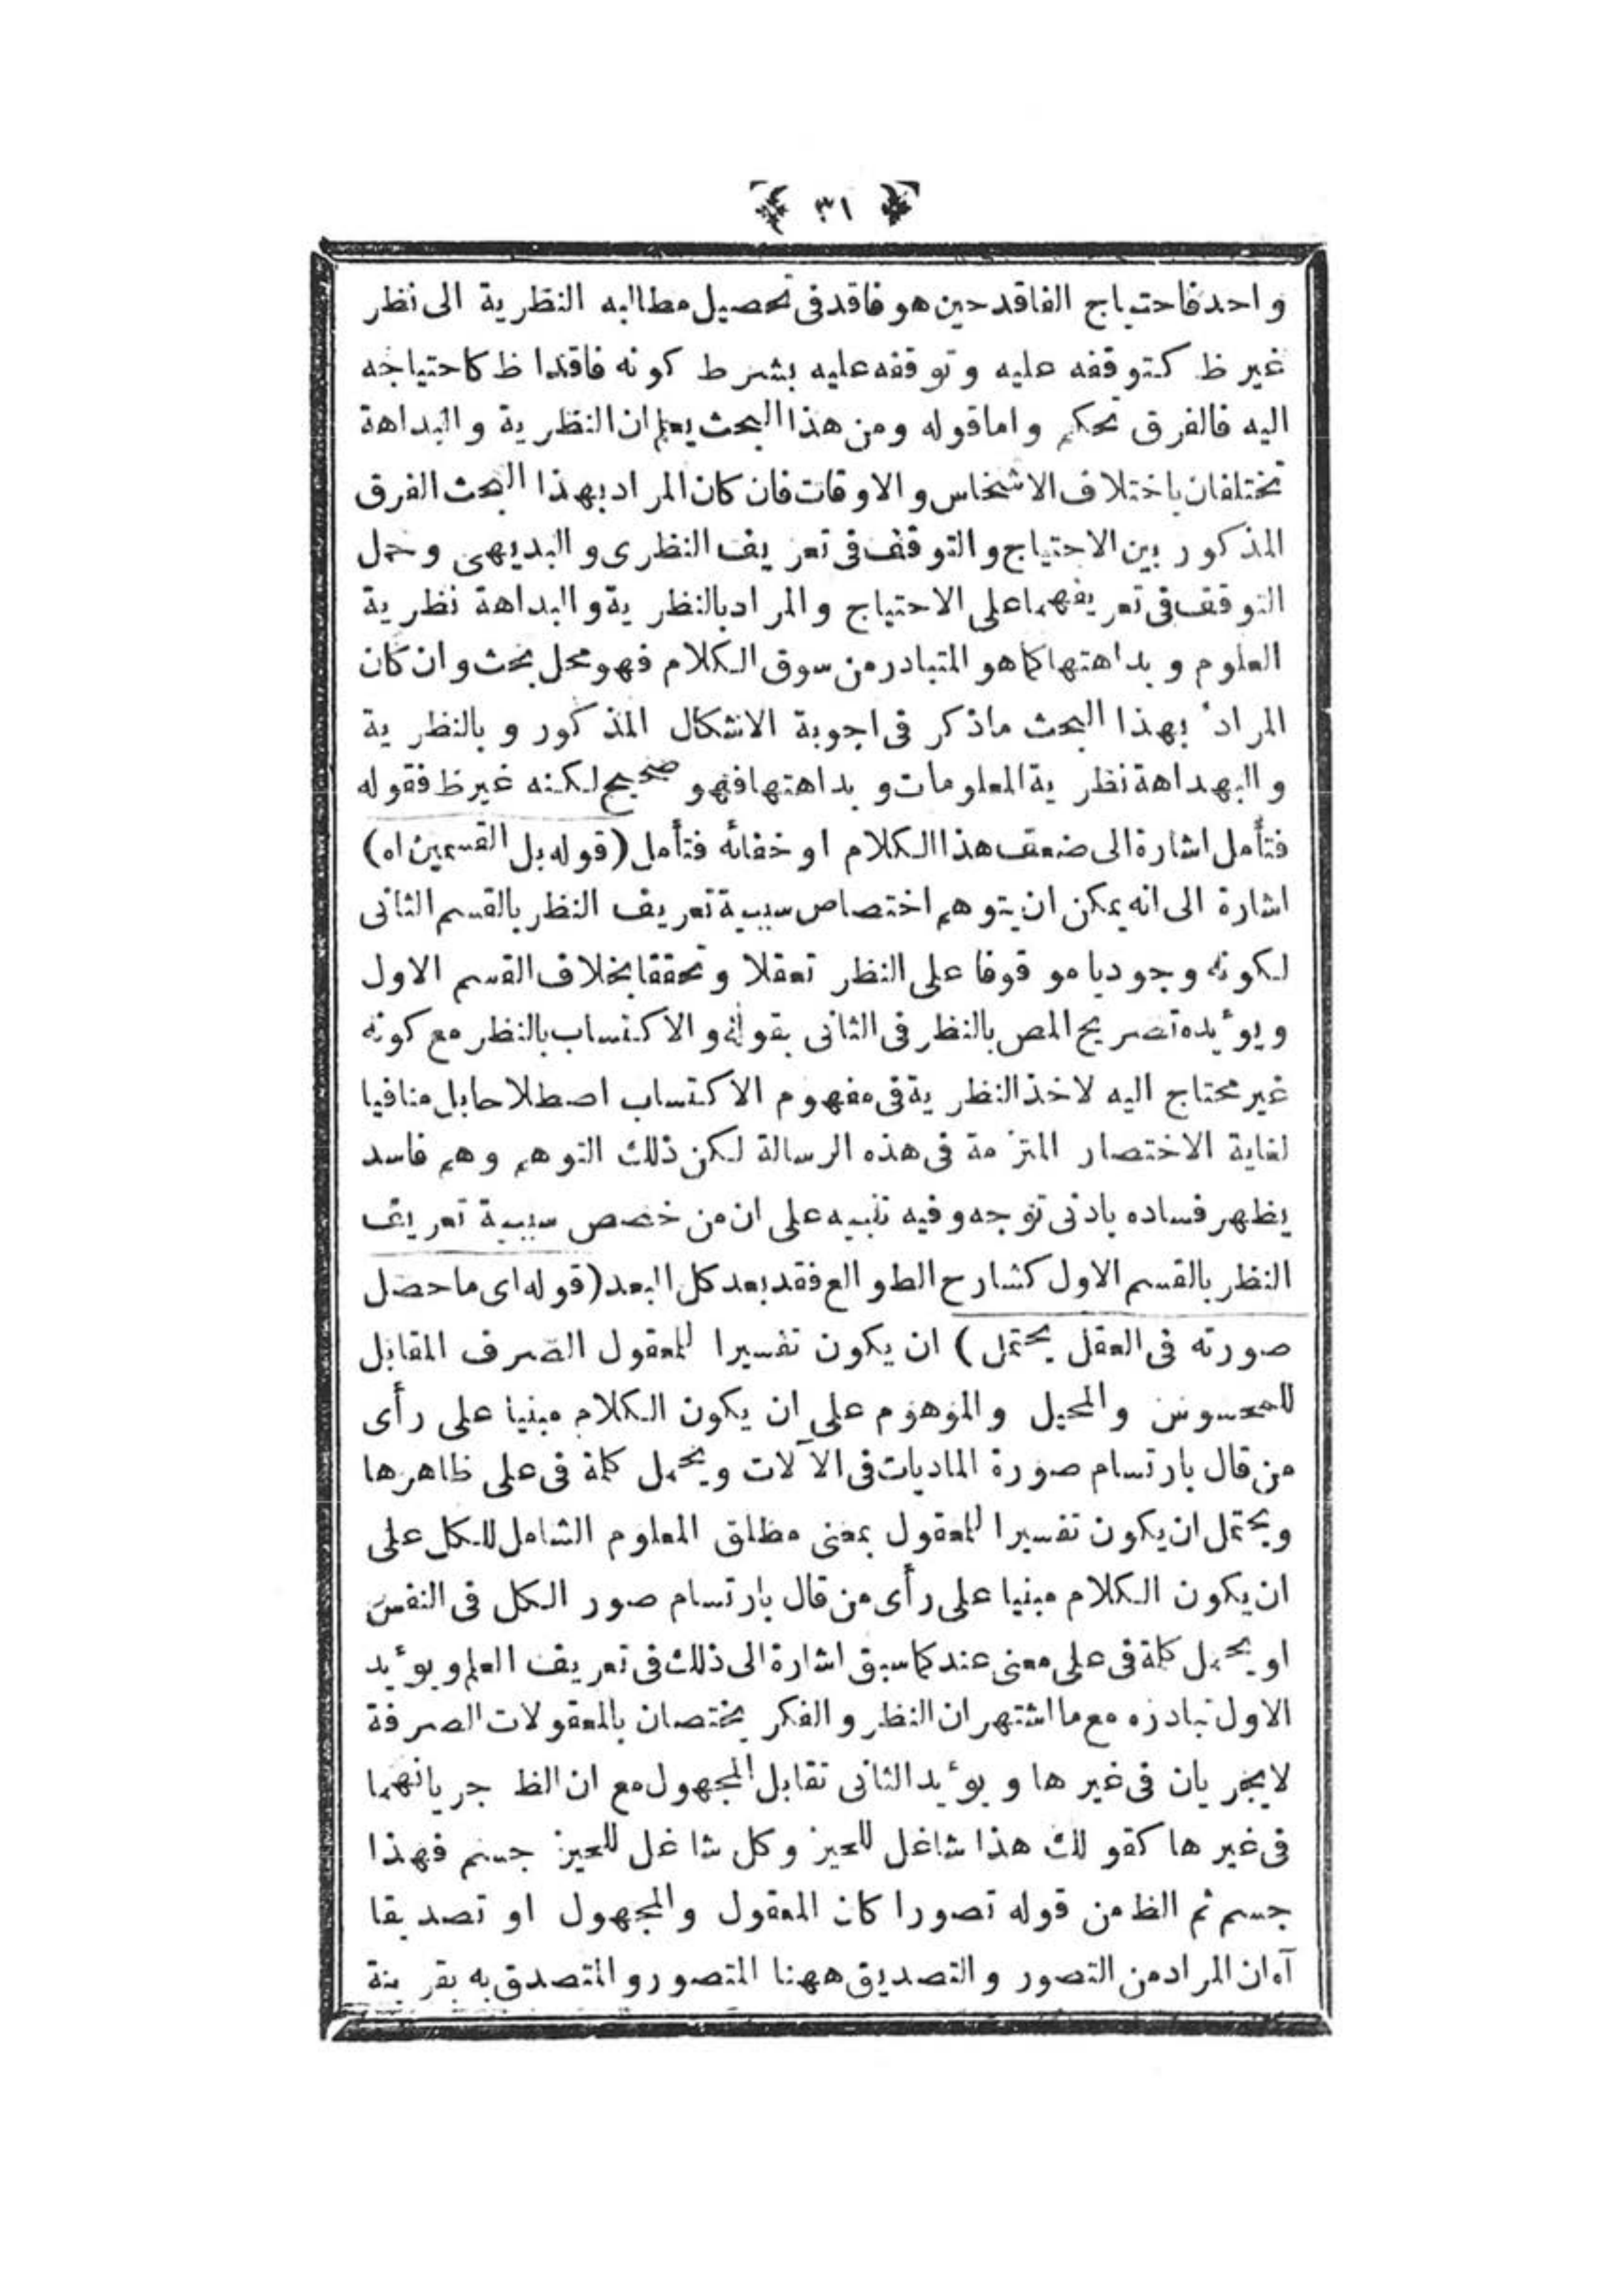 ﴿ ٣١ ﴾
واحد فاحتياج الفاقد حين هو فاقد فى تحصيل مطالبه النظرية الى نظر
غير ظ كتوقفه عليه وتوقفه عليه بشرط كونه فاقدا ظ كاحتياجه
اليه فالفرق تحكم واما قوله ومن هذا البحث يعلم ان النظرية والبداهة
تختلفان باختلاف الاشخاس والاوقات فان كان المراد بهذا البحث الفرق
المذكور بين الاحتياج والتوقف فى تعريف النظرى والبديهى وحمل
التوقف فى تعريفهما على الاحتياج والمراد بالنظرية والبداهة نظرية
العلوم وبداهتها كما هو المتبادر من سوق الكلام فهو محل بحث وان كان
المراد بهذا البحث ماذكر فى اجوبة الاشكال المذكور وبالنظرية
والبهداهة نظرية المعلومات وبداهتها فهو صحيح لكنه غير ظ فقوله
فتأمل اشارة الى ضعف هذا الكلام او خفائه فتأمل (قوله بل القسمين اه)
اشارة الى انه يمكن ان يتوهم اختصاص سببية تعريف النظر بالقسم الثانى
لكونه وجوديا موقوفا على النظر تعقلا وتحققا بخلاف القسم الاول
ويؤيده تصريح المص بالنظر فى الثانى بقوله والاكتساب بالنظر مع كونه
غير محتاج اليه لاخذ النظرية فى مفهوم الاكتساب اصطلاحا بل منافيا
لغاية الاختصار الملتزمة فى هذه الرسالة لكن ذلك التوهم وهم فاسد
يظهر فساده بادنى توجه وفيه تنبيه على ان من خصص سببية تعريف
النظر بالقسم الاول كشارح الطوالع فقد بعد كل البعد (قوله اى ماحصل
صورته فى العقل يحتمل) ان يكون تفسيرا للمعقول الصرف المقابل
للمحسوس والمخيل والموهوم على ان يكون الكلام مبنيا على رأى
من قال بارتسام صورة الماديات فى الآلات ويحمل كلمة فى على ظاهرها
ويحتمل ان يكون تفسيرا للمعقول بمعنى مطلق المعلوم الشامل للكل على
ان يكون الكلام مبنيا على رأى من قال بارتسام صور الكل فى النفس
او يحمل كلمة فى على معنى عند كما سبق اشارة الى ذلك فى تعريف العلم ويؤيد
الاول تبادره مع ما اشتهر ان النظر والفكر يختصان بالمعقولات الصرفة
لايجريان فى غيرها ويؤيد الثانى تقابل المجهول مع ان الظ جريانهما
فى غيرها كقولك هذا شاغل للحيز وكل شاغل للحيز جسم فهذا
جسم ثم الظ من قوله تصورا كان المعقول والمجهول او تصديقا
آه ان المراد من التصور والتصديق ههنا المتصور والمتصدق به بقرينة